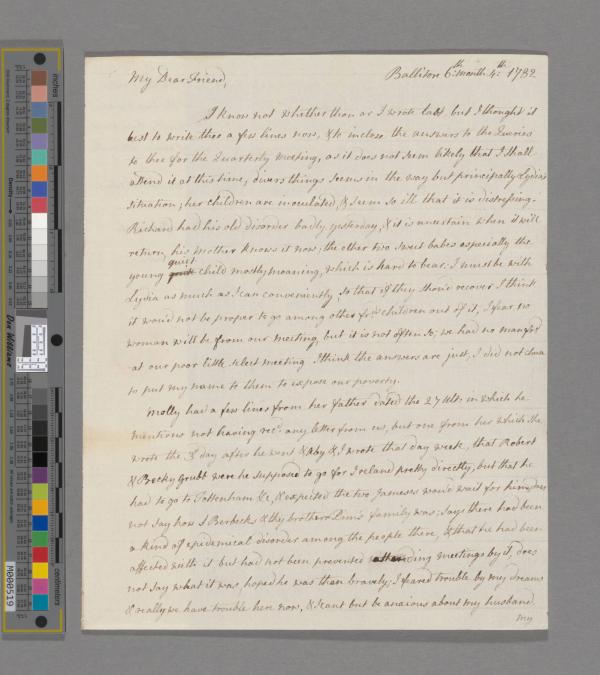 My Dear Friend, Ballitore 6th month 4th 1782
I know not whether thou or I wrote last but I thought it
best to write thee a few lines now, & to inclose the answers to the Queries
to thee for the Quarterly meeting, as it does not seem likely that I shall
attend it at this time, divers things seems in the way but principally Lydia's
situation; her children are inoculated, & seem so ill that it is distressing.
Richard had his old disorder badly yesterday, & it is uncertain when it will
return, his mother knows it now; the other two sweet babes especially the
quiet
young child mostly moaning, which is hard to bear. I must be with
Lydia as much as I can conveniently, so that if they should recover I think
it would not be proper to go among other frds children out of it, I fear no
woman will be from our meeting, but it is not often so; we had no man frd
at our poor little select meeting I think the answers are just, I did not chuse
to put my name to them to expose our poverty.
Molly had a few lines from her father dated the 27 Ult: in which he
mentions not having recd any letter from us, but one from her which she
wrote the 3d day after he went & Aby & I wrote that day week, that Robert
& Becky Grubb were he supposed to go for Ireland pretty directly, but that he
had to go to Tottenham &c, & expected the two Jameses would wait for him, does
not say how J Berbecks & thy brother Dim's family was; says there had been
a kind of epidemical disorder among the people there, & that he had been
affected with it but had not been prevented attending meetings by it, does
not say what it was, hoped he was then bravely; I feared trouble by my dreams
& really we have trouble here now, & I cant but be anxious about my husband.
my
inches
centimetres
Don Williams
M000519